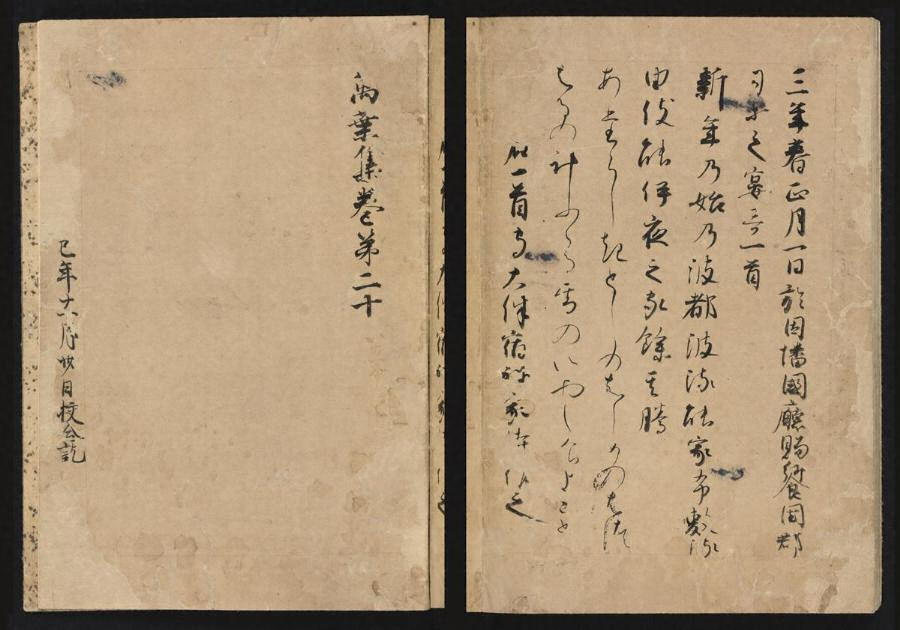 三年春正月一日於因幡國廳賜饗国郡
司等之宴哥一首
新年乃始乃波都波流能家布敷流
由伎能伊夜之家餘其騰
あたらしきとしのはしめのはつ
はるの計ふふる雪のいやしけよこと
右一首守大伴宿祢家持作之
萬葉集卷第二十
巳年 月 日校合訖